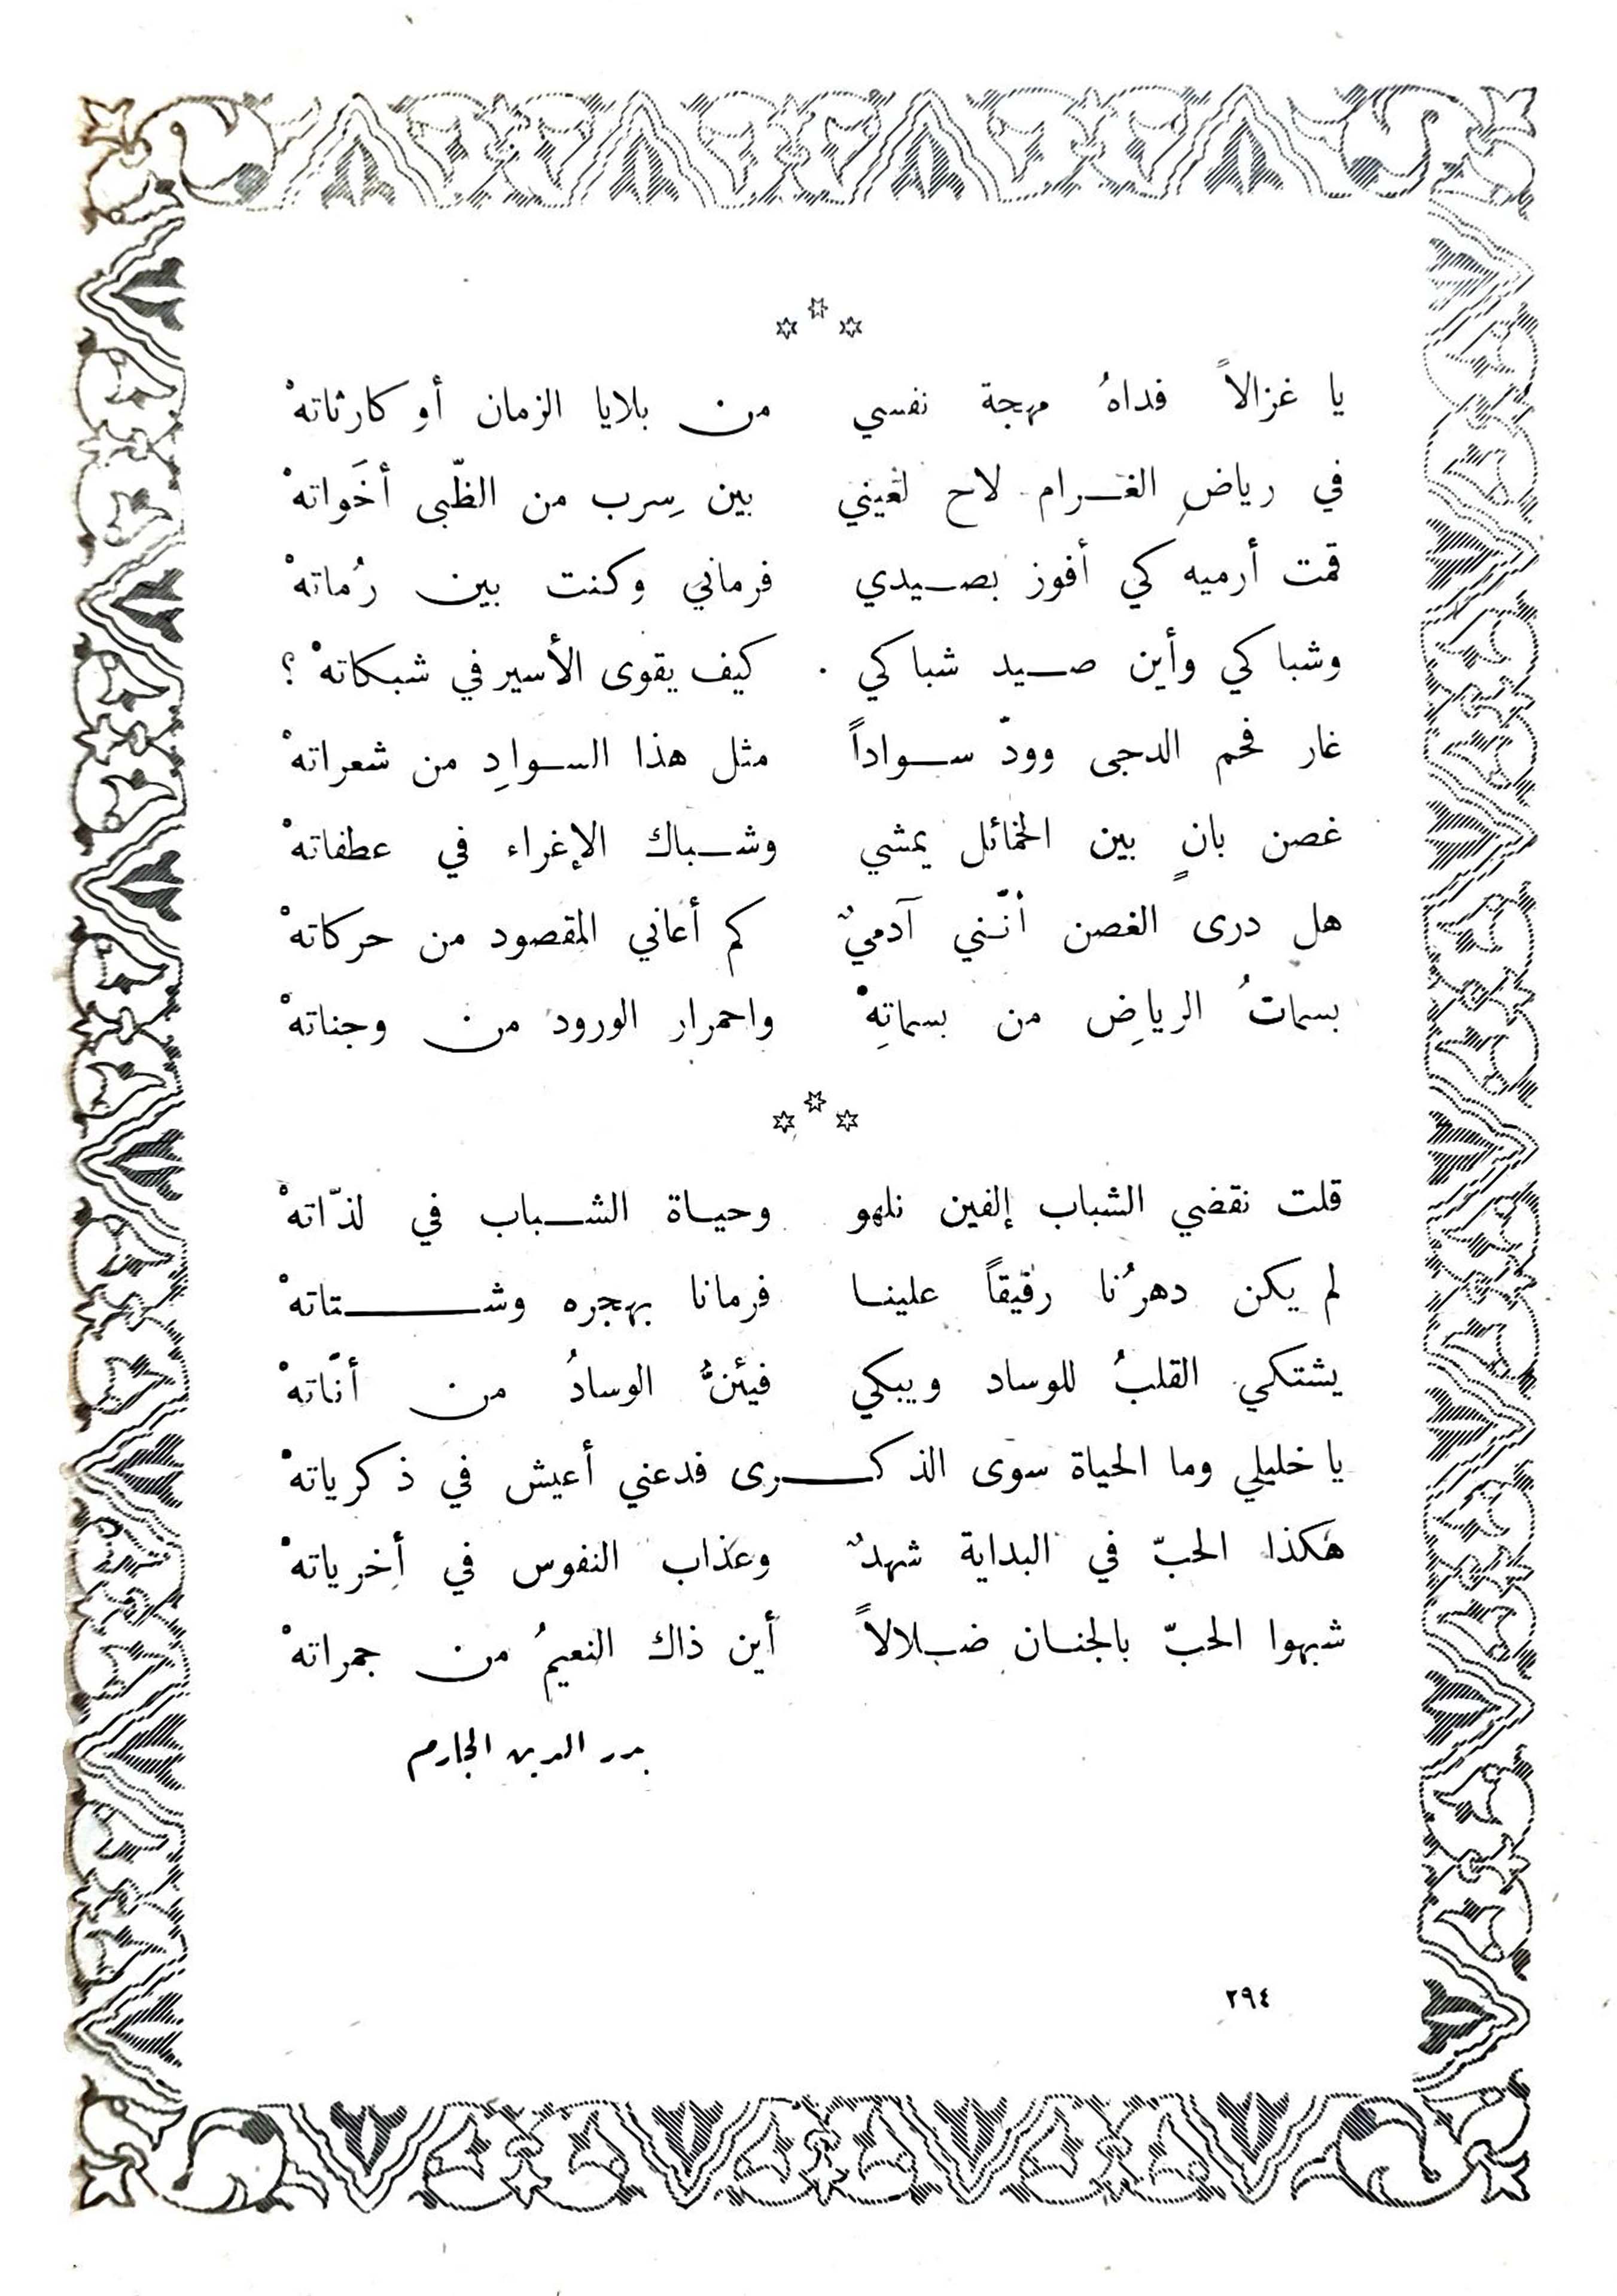 يا غزالاً فداهُ مهجة نفسي من بلايا الزمان أو كارثاتهْ
في رياضِ الغرام لاح لعيني بين سِرب من الظّبى أخَواتهْ
قمت أرميه كي أفوز بصيدي فرماني وكنت بين رُماتهْ
وشباكي وأين صيد شباكي كيف يقوى الأسير في شبكاتهْ ؟
غار فحم الدجى وودّ سواداً مثل هذا السوادِ من شعراتهْ
غصن بانٍ بين الخمائل يمشي وشباك الإغراء في عطفاتهْ
هل درى الغصن أنّني آدميٌ كم أعاني المقصود من حركاتهْ
بسماتُ الرياضِ من بسماتِهْ واحمرار الورود من وجناتهْ
قلت نقضي الشباب إلفين نلهو وحياة الشباب في لذّاتهْ
لم يكن دهرُنا رقيقاً علينا فرمانا بهجره وشتاتهْ
يشتكي القلبُ للوساد ويبكي فيئنُّ الوسادُ من أنّاتهْ
يا خليلي وما الحياة سوى الذكرى فدعني أعيش في ذكرياتهْ
هكذا الحبّ في البداية شهدٌ وعذاب النفوس في أخرياتهْ
شبهوا الحبّ بالجنان ضلالاً أين ذاك النعيمُ من جمراتهْ
بدر الدين الجارم
٢٩٤